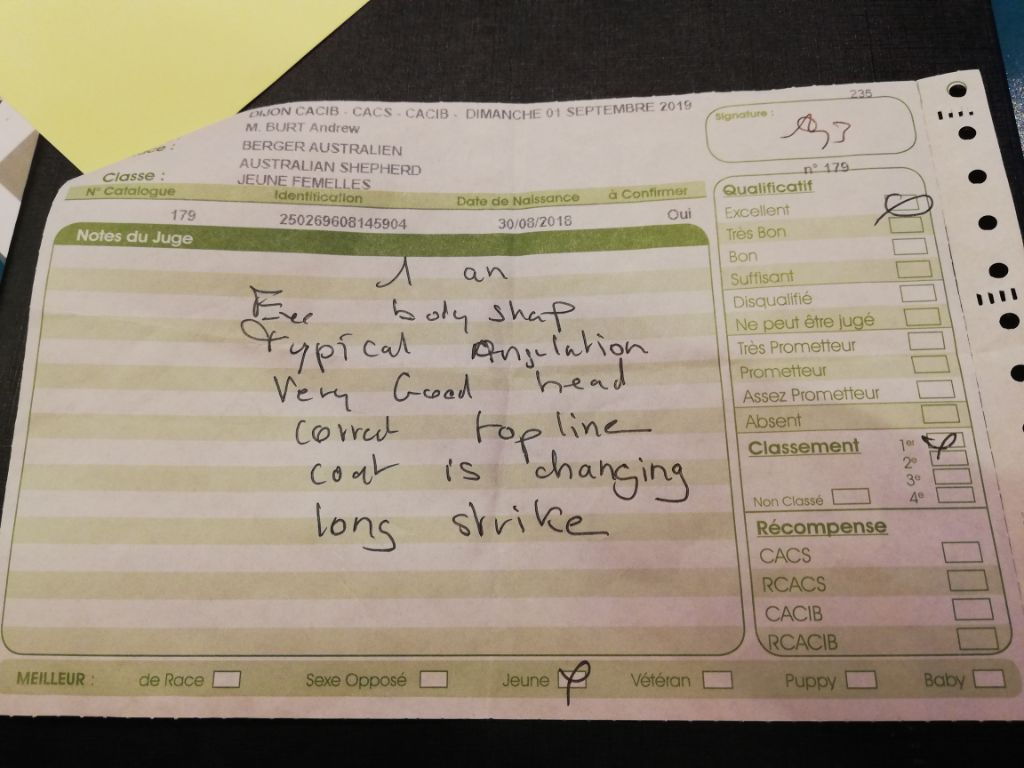 235
DIJON CACIB - CACS - CACIB - DIMANCHE 01 SEPTEMBRE 2019
Signature :
M. BURT Andrew
BERGER AUSTRALIEN
AUSTRALIAN SHEPHERD
Classe :
JEUNE FEMELLES
n° 179
N° Catalogue Identification Date de Naissance à Confirmer
179 250269608145904 30/08/2018 Oui
Notes du Juge
1 an
Exc body shap
typical Angulation
Very Good head
correct topline
coat is changing
long strike
Qualificatif
Excellent
Très Bon
Bon
Suffisant
Disqualifié
Ne peut être jugé
Très Prometteur
Prometteur
Assez Prometteur
Absent
Classement 1er
2e
3e
Non Classé 4e
Récompense
CACS
RCACS
CACIB
RCACIB
MEILLEUR : de Race Sexe Opposé Jeune Vétéran Puppy Baby